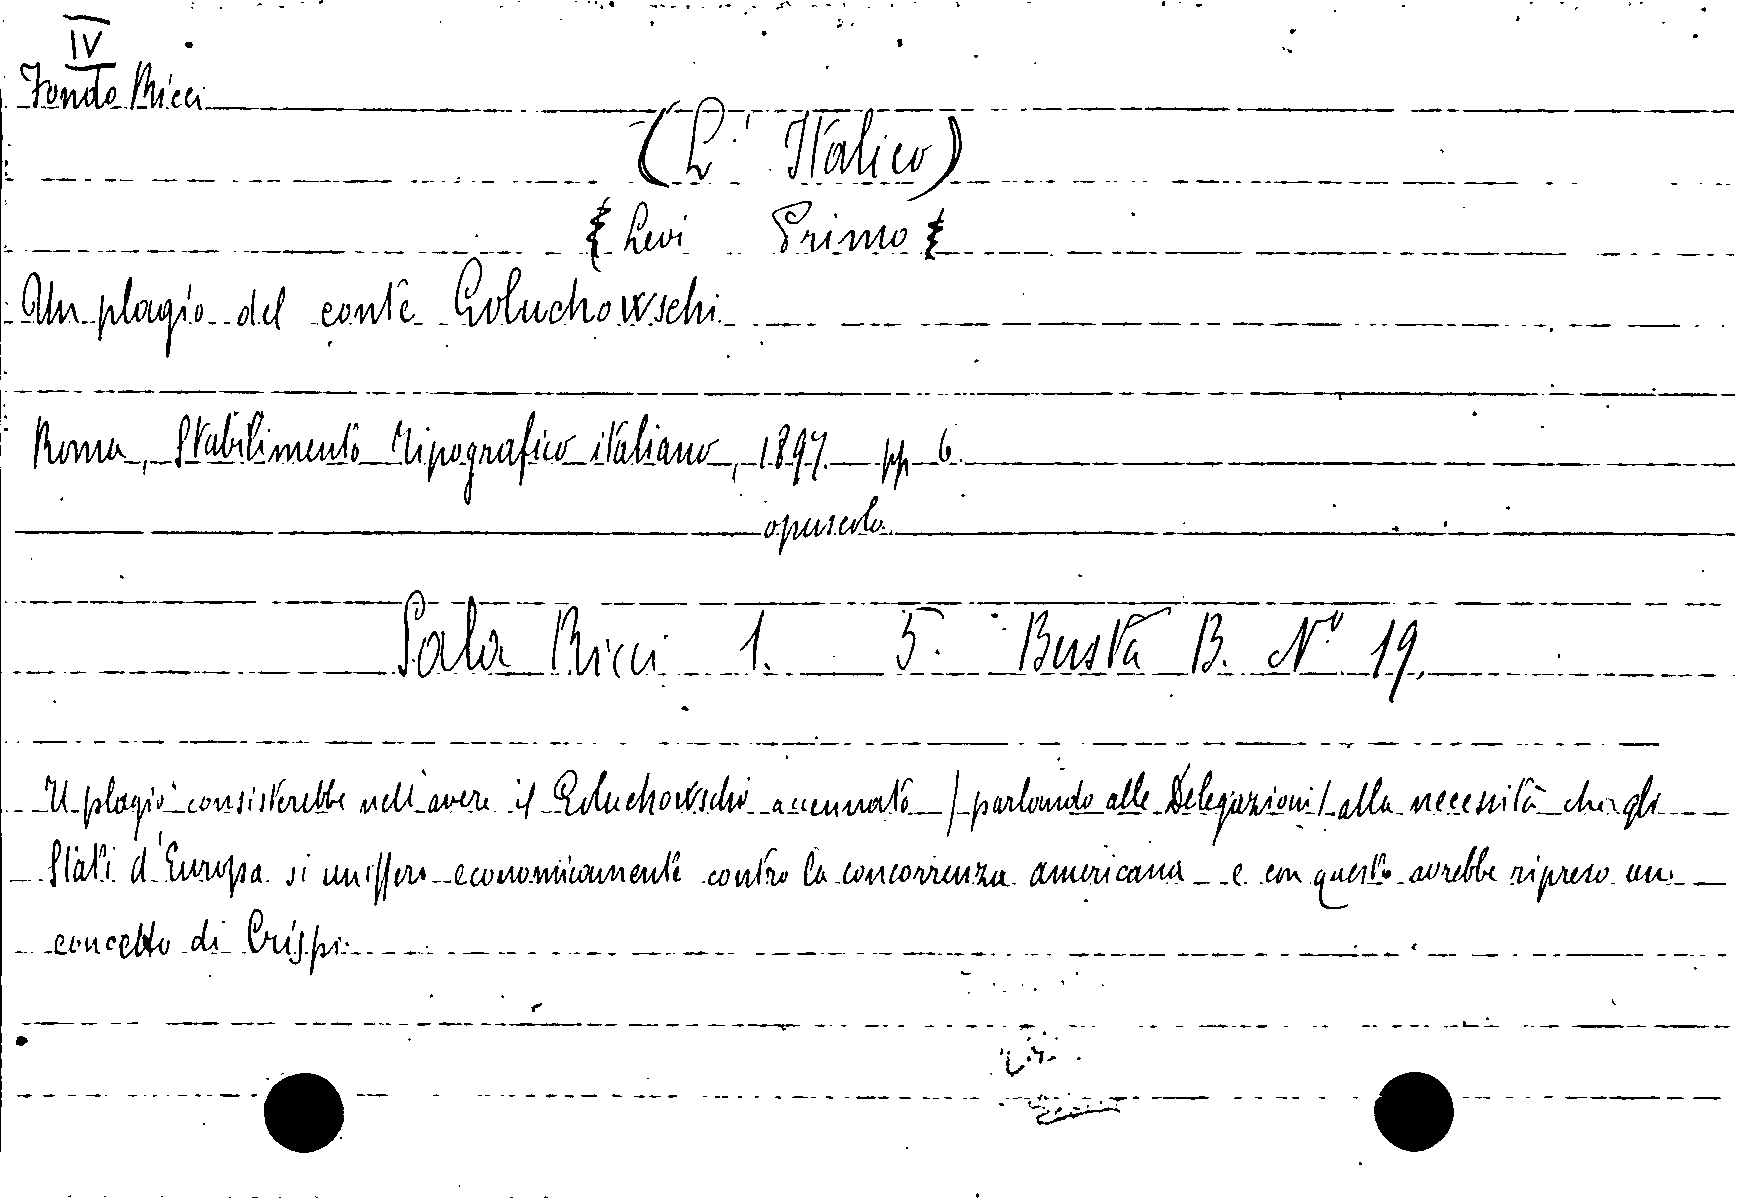 IV
Fondo Ricci
(L'Italico)
Levi Primo
Un plagio del conte Goluchowschi
Roma, Stabilimento Tipografico italiano, 1897. pp 6.
opuscolo
Sala Ricci 1. 5. Busta B. N° 19.
Il plagio consisterebbe nell'avere il Goluchowschi accennato / parlando alle Delegazioni / alla necessità che gli
Stati d'Europa si unissero economicamente contro la concorrenza americana e con questo avrebbe ripreso un
concetto di Crispi.